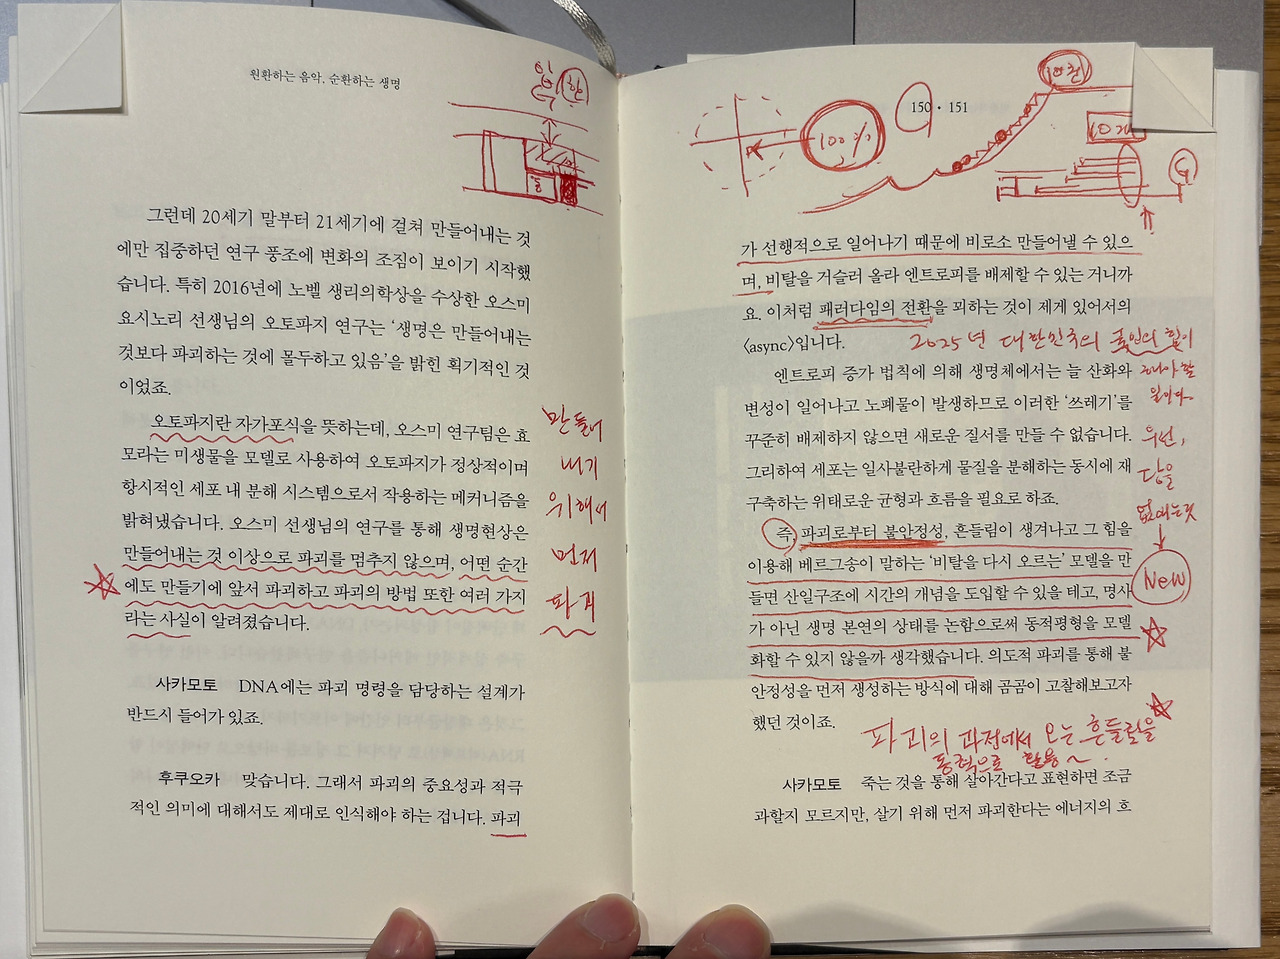 원환하는 음악, 순환하는 생명
그런데 20세기 말부터 21세기에 걸쳐 만들어내는 것
에만 집중하던 연구 풍조에 변화의 조짐이 보이기 시작했
습니다. 특히 2016년에 노벨 생리의학상을 수상한 오스미
요시노리 선생님의 오토파지 연구는 ‘생명은 만들어내는
것보다 파괴하는 것에 몰두하고 있음’을 밝힌 획기적인 것
이었죠.
오토파지란 자가포식을 뜻하는데, 오스미 연구팀은 효
모라는 미생물을 모델로 사용하여 오토파지가 정상적이며
항시적인 세포 내 분해 시스템으로서 작용하는 메커니즘을
밝혀냈습니다. 오스미 선생님의 연구를 통해 생명현상은
만들어내는 것 이상으로 파괴를 멈추지 않으며, 어떤 순간
에도 만들기에 앞서 파괴하고 파괴의 방법 또한 여러 가지
라는 사실이 알려졌습니다.
만들어
내기
위해서
먼저
파괴
사카모토 DNA에는 파괴 명령을 담당하는 설계가
반드시 들어가 있죠.
후쿠오카 맞습니다. 그래서 파괴의 중요성과 적극
적인 의미에 대해서도 제대로 인식해야 하는 겁니다. 파괴
150 • 151
100%
G
가 선행적으로 일어나기 때문에 비로소 만들어낼 수 있으
며, 비탈을 거슬러 올라 엔트로피를 배제할 수 있는 거니까
요. 이처럼 패러다임의 전환을 꾀하는 것이 제게 있어서의
〈async〉입니다.
2025년 대한민국의 국민의힘이
해야할
일이다.
우선,
당을
없애는것
New
엔트로피 증가 법칙에 의해 생명체에서는 늘 산화와
변성이 일어나고 노폐물이 발생하므로 이러한 ‘쓰레기’를
꾸준히 배제하지 않으면 새로운 질서를 만들 수 없습니다.
그리하여 세포는 일사불란하게 물질을 분해하는 동시에 재
구축하는 위태로운 균형과 흐름을 필요로 하죠.
즉, 파괴로부터 불안정성, 흔들림이 생겨나고 그 힘을
이용해 베르그송이 말하는 ‘비탈을 다시 오르는’ 모델을 만
들면 산일구조에 시간의 개념을 도입할 수 있을 테고, 명사
가 아닌 생명 본연의 상태를 논함으로써 동적평형을 모델
화할 수 있지 않을까 생각했습니다. 의도적 파괴를 통해 불
안정성을 먼저 생성하는 방식에 대해 곰곰이 고찰해보고자
했던 것이죠.
파괴의 과정에서 오는 흔들림을
동적으로 활용~.
사카모토 죽는 것을 통해 살아간다고 표현하면 조금
과할지 모르지만, 살기 위해 먼저 파괴한다는 에너지의 흐